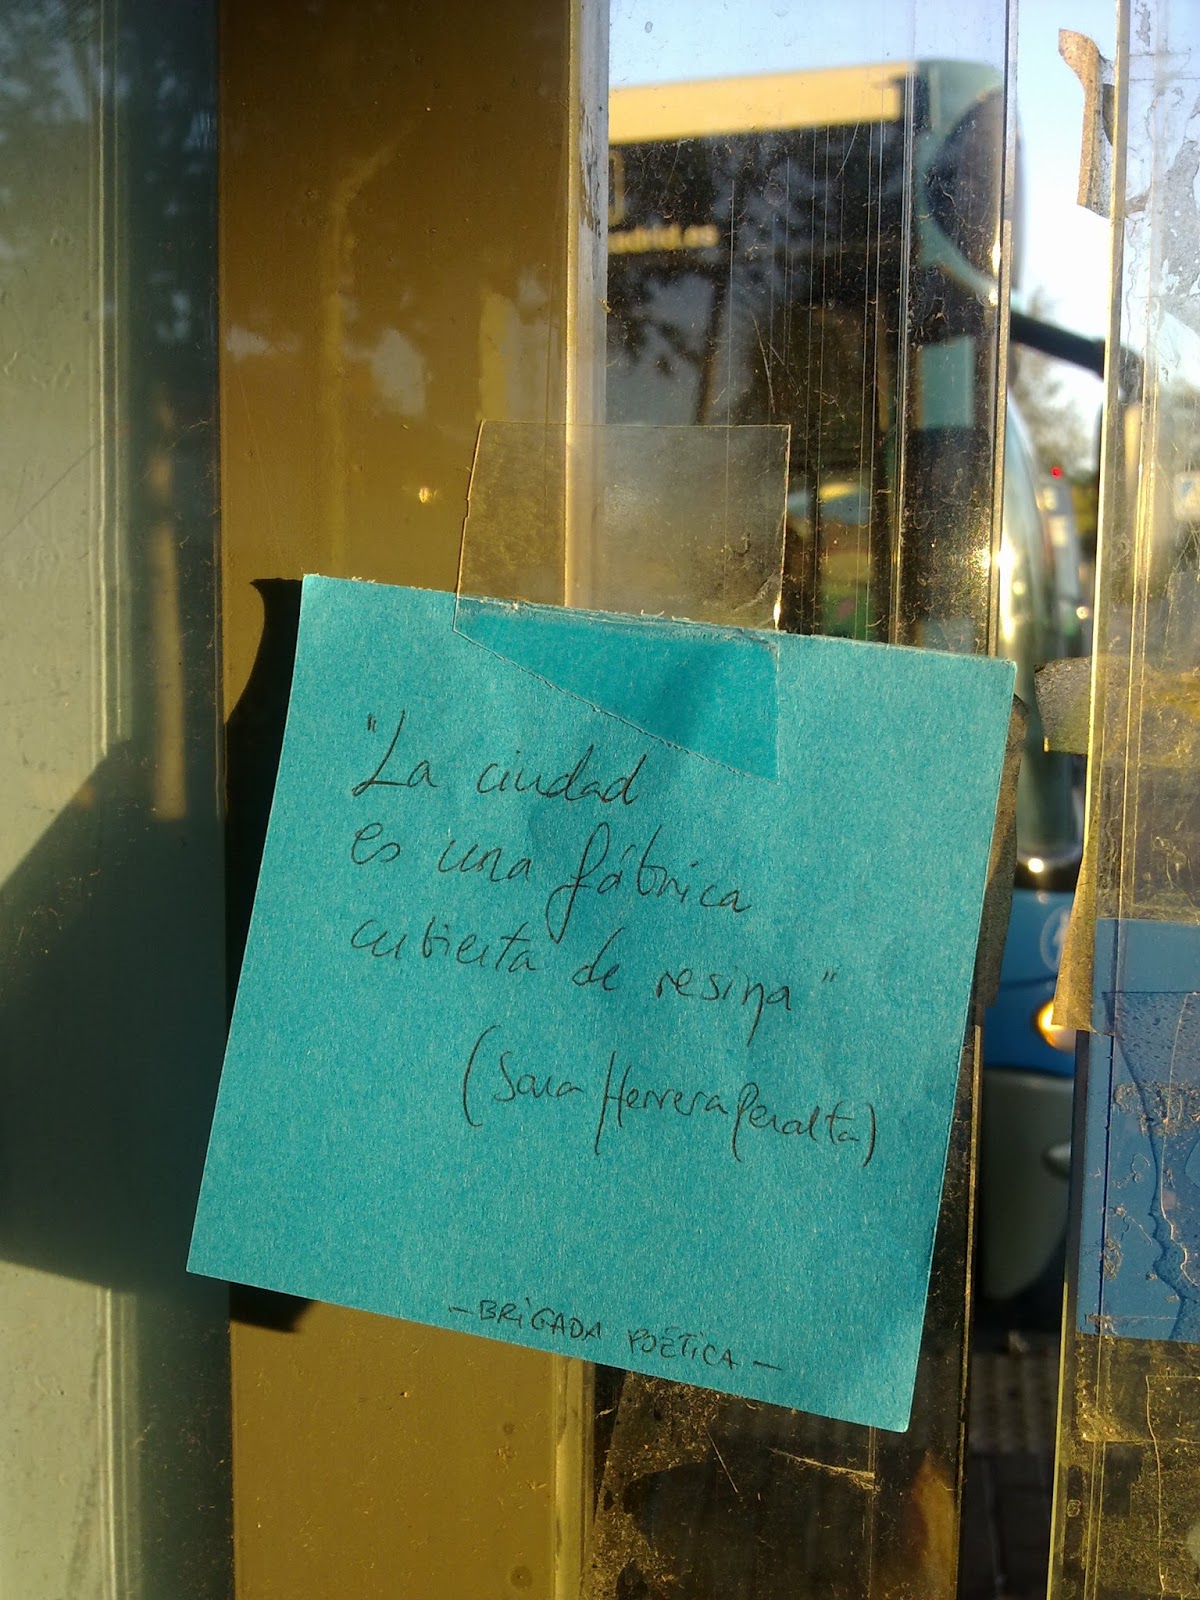 "La ciudad
es una fábrica
cubierta de resina"
(Sara Herrera Peralta)
-BRIGADA POÉTICA-